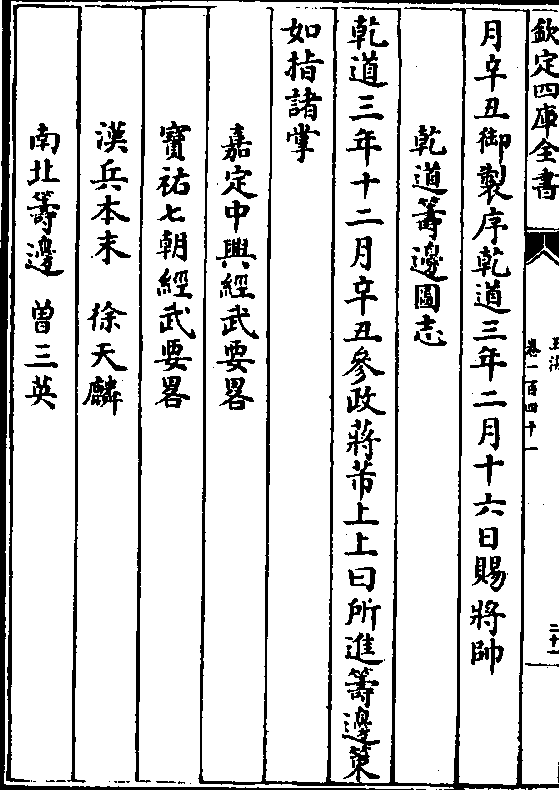 欽定四庫全書
玉海
卷一百四十一
二十一
月辛丑御製序乾道三年二月十六日賜將帥
乾道籌邊圖志
乾道三年十二月辛丑參政蔣芾上上曰所進籌邊策
如指諸掌
嘉定中興經武要畧
寶祐七朝經武要畧
漢兵本末　徐天麟
南北籌邊　曾三英